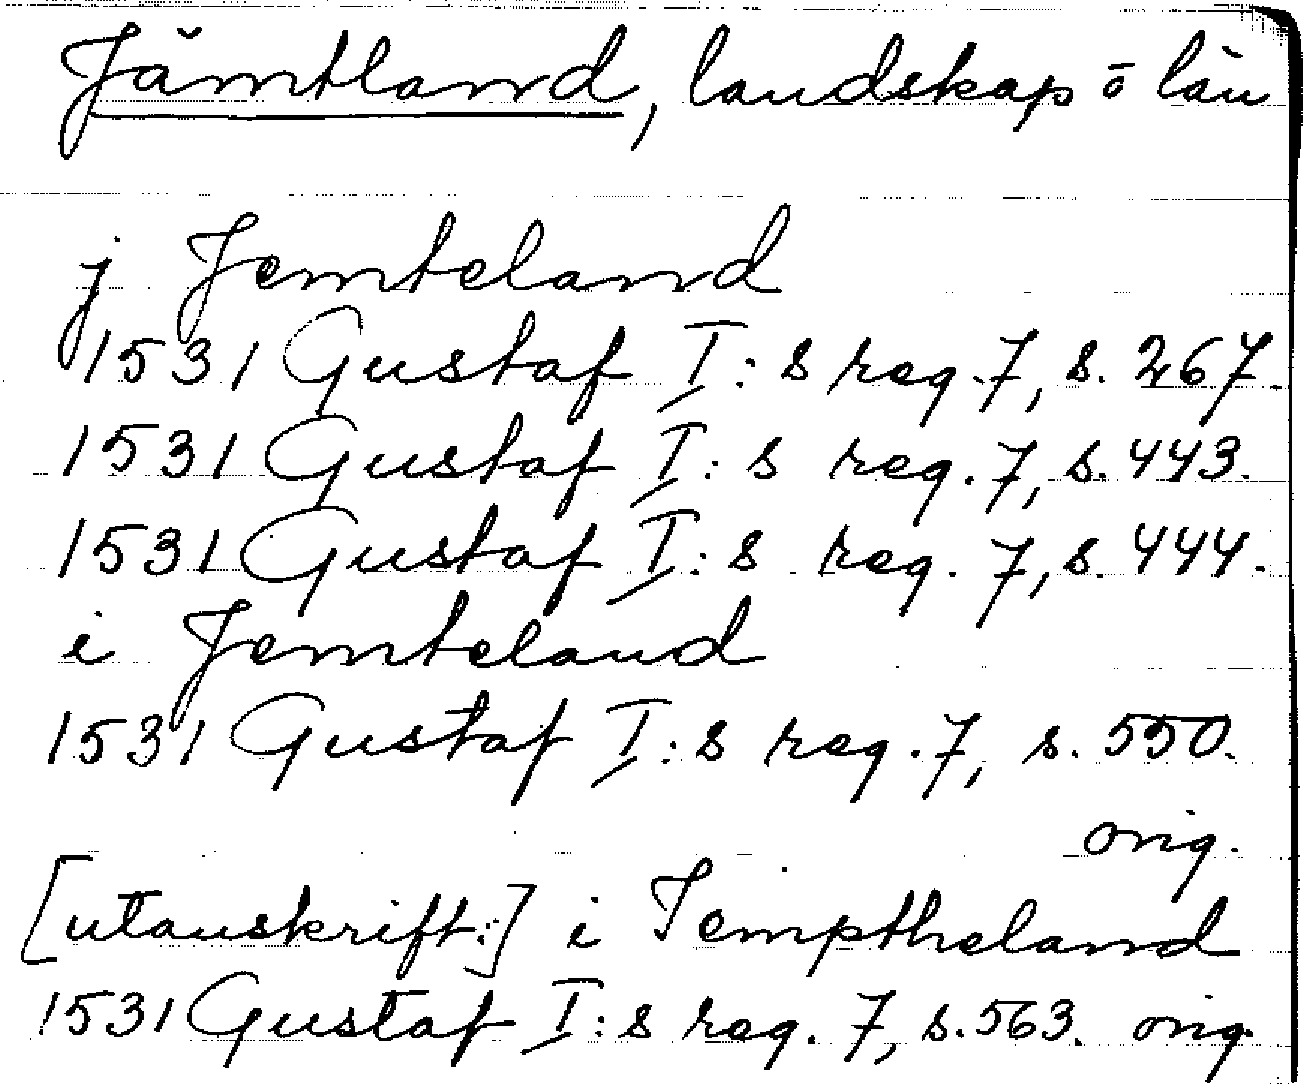 Jämtland, landskap o län
j Jemteland
1531 Gustaf I:s reg. 7, s. 267.
1531 Gustaf I:s reg. 7, s. 443.
1531 Gustaf I:s reg. 7, s. 444.
i Jemteland
1531 Gustaf I:s reg. 7, s. 550.
orig.
[utanskrift:] i Iemptheland
1531 Gustaf I:s reg. 7, s. 563. orig.